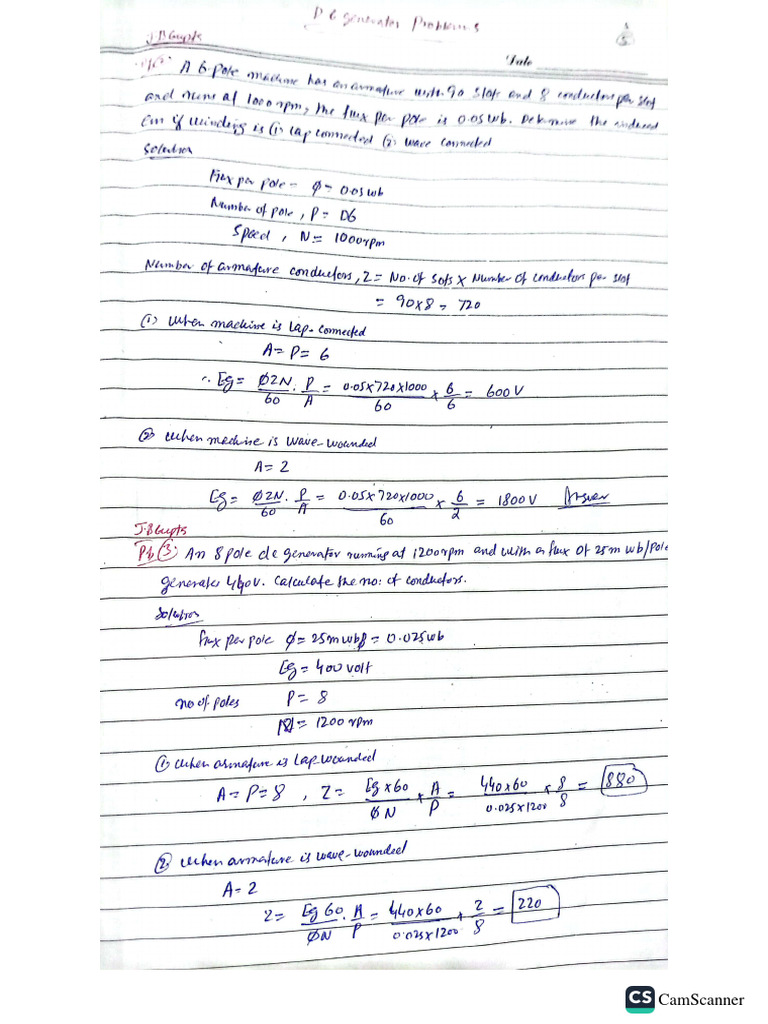 DC generator Problems
J.B Gupta
Date
A 6 pole machine has an armature with 90 slots and 8 conductors per slot
and runs at 1000 rpm, the flux per pole is 0.05 wb. Determine the induced
Emf if winding is (1) Lap connected (2) wave connected
Solution
Flux per pole = Φ = 0.05 wb
Number of pole, P = 06
Speed, N = 1000 rpm
Number of armature conductors, Z = No. of slots × Number of conductors per slot
= 90×8 = 720
(1) When machine is Lap-connected
A = P = 6
∴ Eg = ΦZN/60 . P/A = 0.05×720×1000/60 × 6/6 = 600 V
(2) When machine is wave-wounded
A = 2
Eg = ΦZN/60 . P/A = 0.05×720×1000/60 × 6/2 = 1800 V Answer
J.B Gupta
Pb (3) An 8 pole dc generator running at 1200 rpm and with a flux of 25 m wb/pole
generates 440V. Calculate the no: of conductors.
Solution
flux per pole Φ = 25m wb = 0.025 wb
Eg = 400 volt
no of poles P = 8
N = 1200 rpm
(1) when armature is Lap wounded
A = P = 8 , Z = Eg×60/ΦN × A/P = 440×60/0.025×1200 × 8/8 = 880
(2) when armature is wave-wounded
A = 2
Z = Eg 60/ΦN . A/P = 440×60/0.025×1200 × 2/8 = 220
CS CamScanner